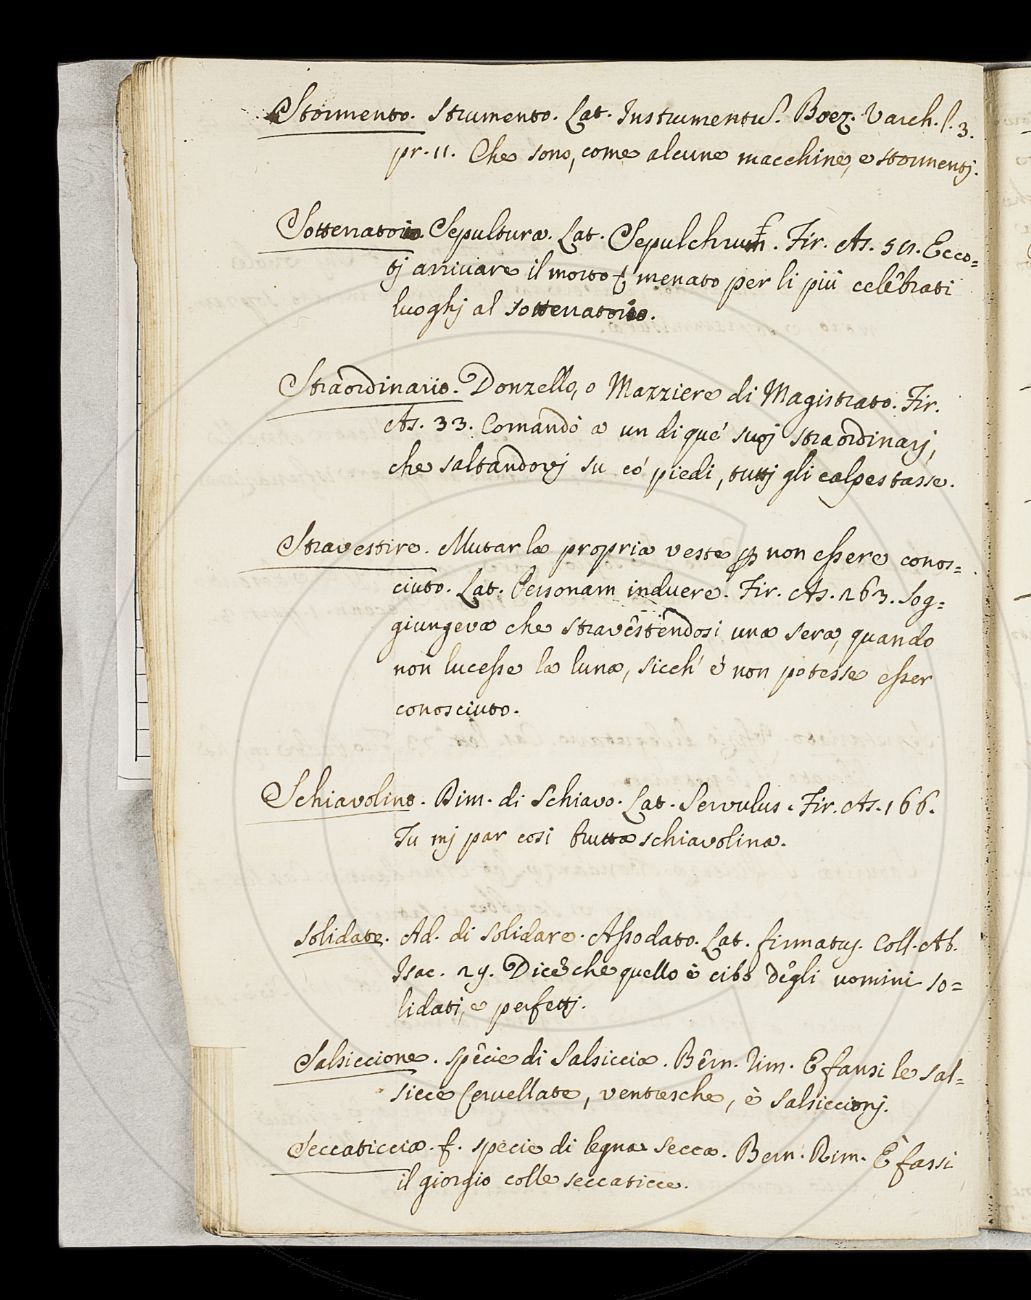 Stormento. Strumento. Lat. Instrumentus. Boez. Varch. l. 3.
pr. 11. Che sono, come alcune macchine, e stormentj.
Sotterratorio Sepultura. Lat. Sepulchrum. Fir. As. 50. Ecco=
tj arrivare il morto menato per li più celebrati
luoghj al sotterratorio.
Straordinario. Donzello, o Mazziere di Magistrato. Fir.
As. 33. Comandò a un di que' suoj straordinarj,
che saltandovj su co' piedi, tuttj gli calpestasse.
Stravestire. Mutar la propria veste p non essere conos=
ciuto. Lat. Personam induere. Fir. As. 263. Sog=
giungeva che stravestendosi una sera, quando
non lucesse la luna, sicch' e' non potesse esser
conosciuto.
Schiavolino. Dim. di Schiavo. Lat. Servulus. Fir. As. 166.
Tu mj par così tutta schiavolina.
Solidato. Ad. di Solidare. Assodato. Lat. firmatus. Coll. Ab.
Isac. 29. Dice che quello è cibo degli uomini so=
lidati, e perfettj.
Salsiccione. Spêcie di Salsiccia. Bern. rim. E fansi le sal=
sicce Cervellate, ventresche, è Salsiccionj.
Seccaticcia. f. Specie di legna secca. Bern. Rim. È fassi
il giorgio colle seccaticce.